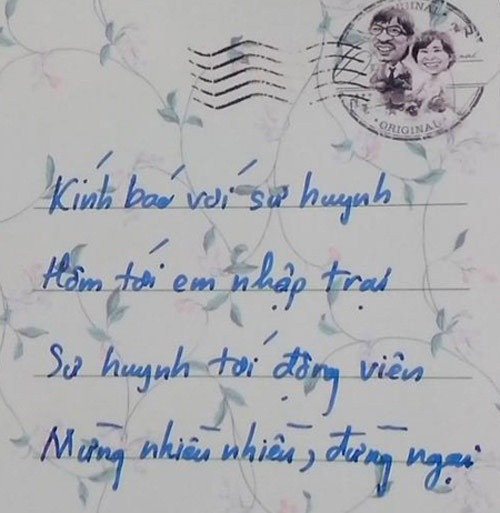 ORIGINAL
ORIGINAL
Kính báo với sư huynh
Hôm tới em nhập trại
Sư huynh tới động viên
Mừng nhiều nhiều, đừng ngại